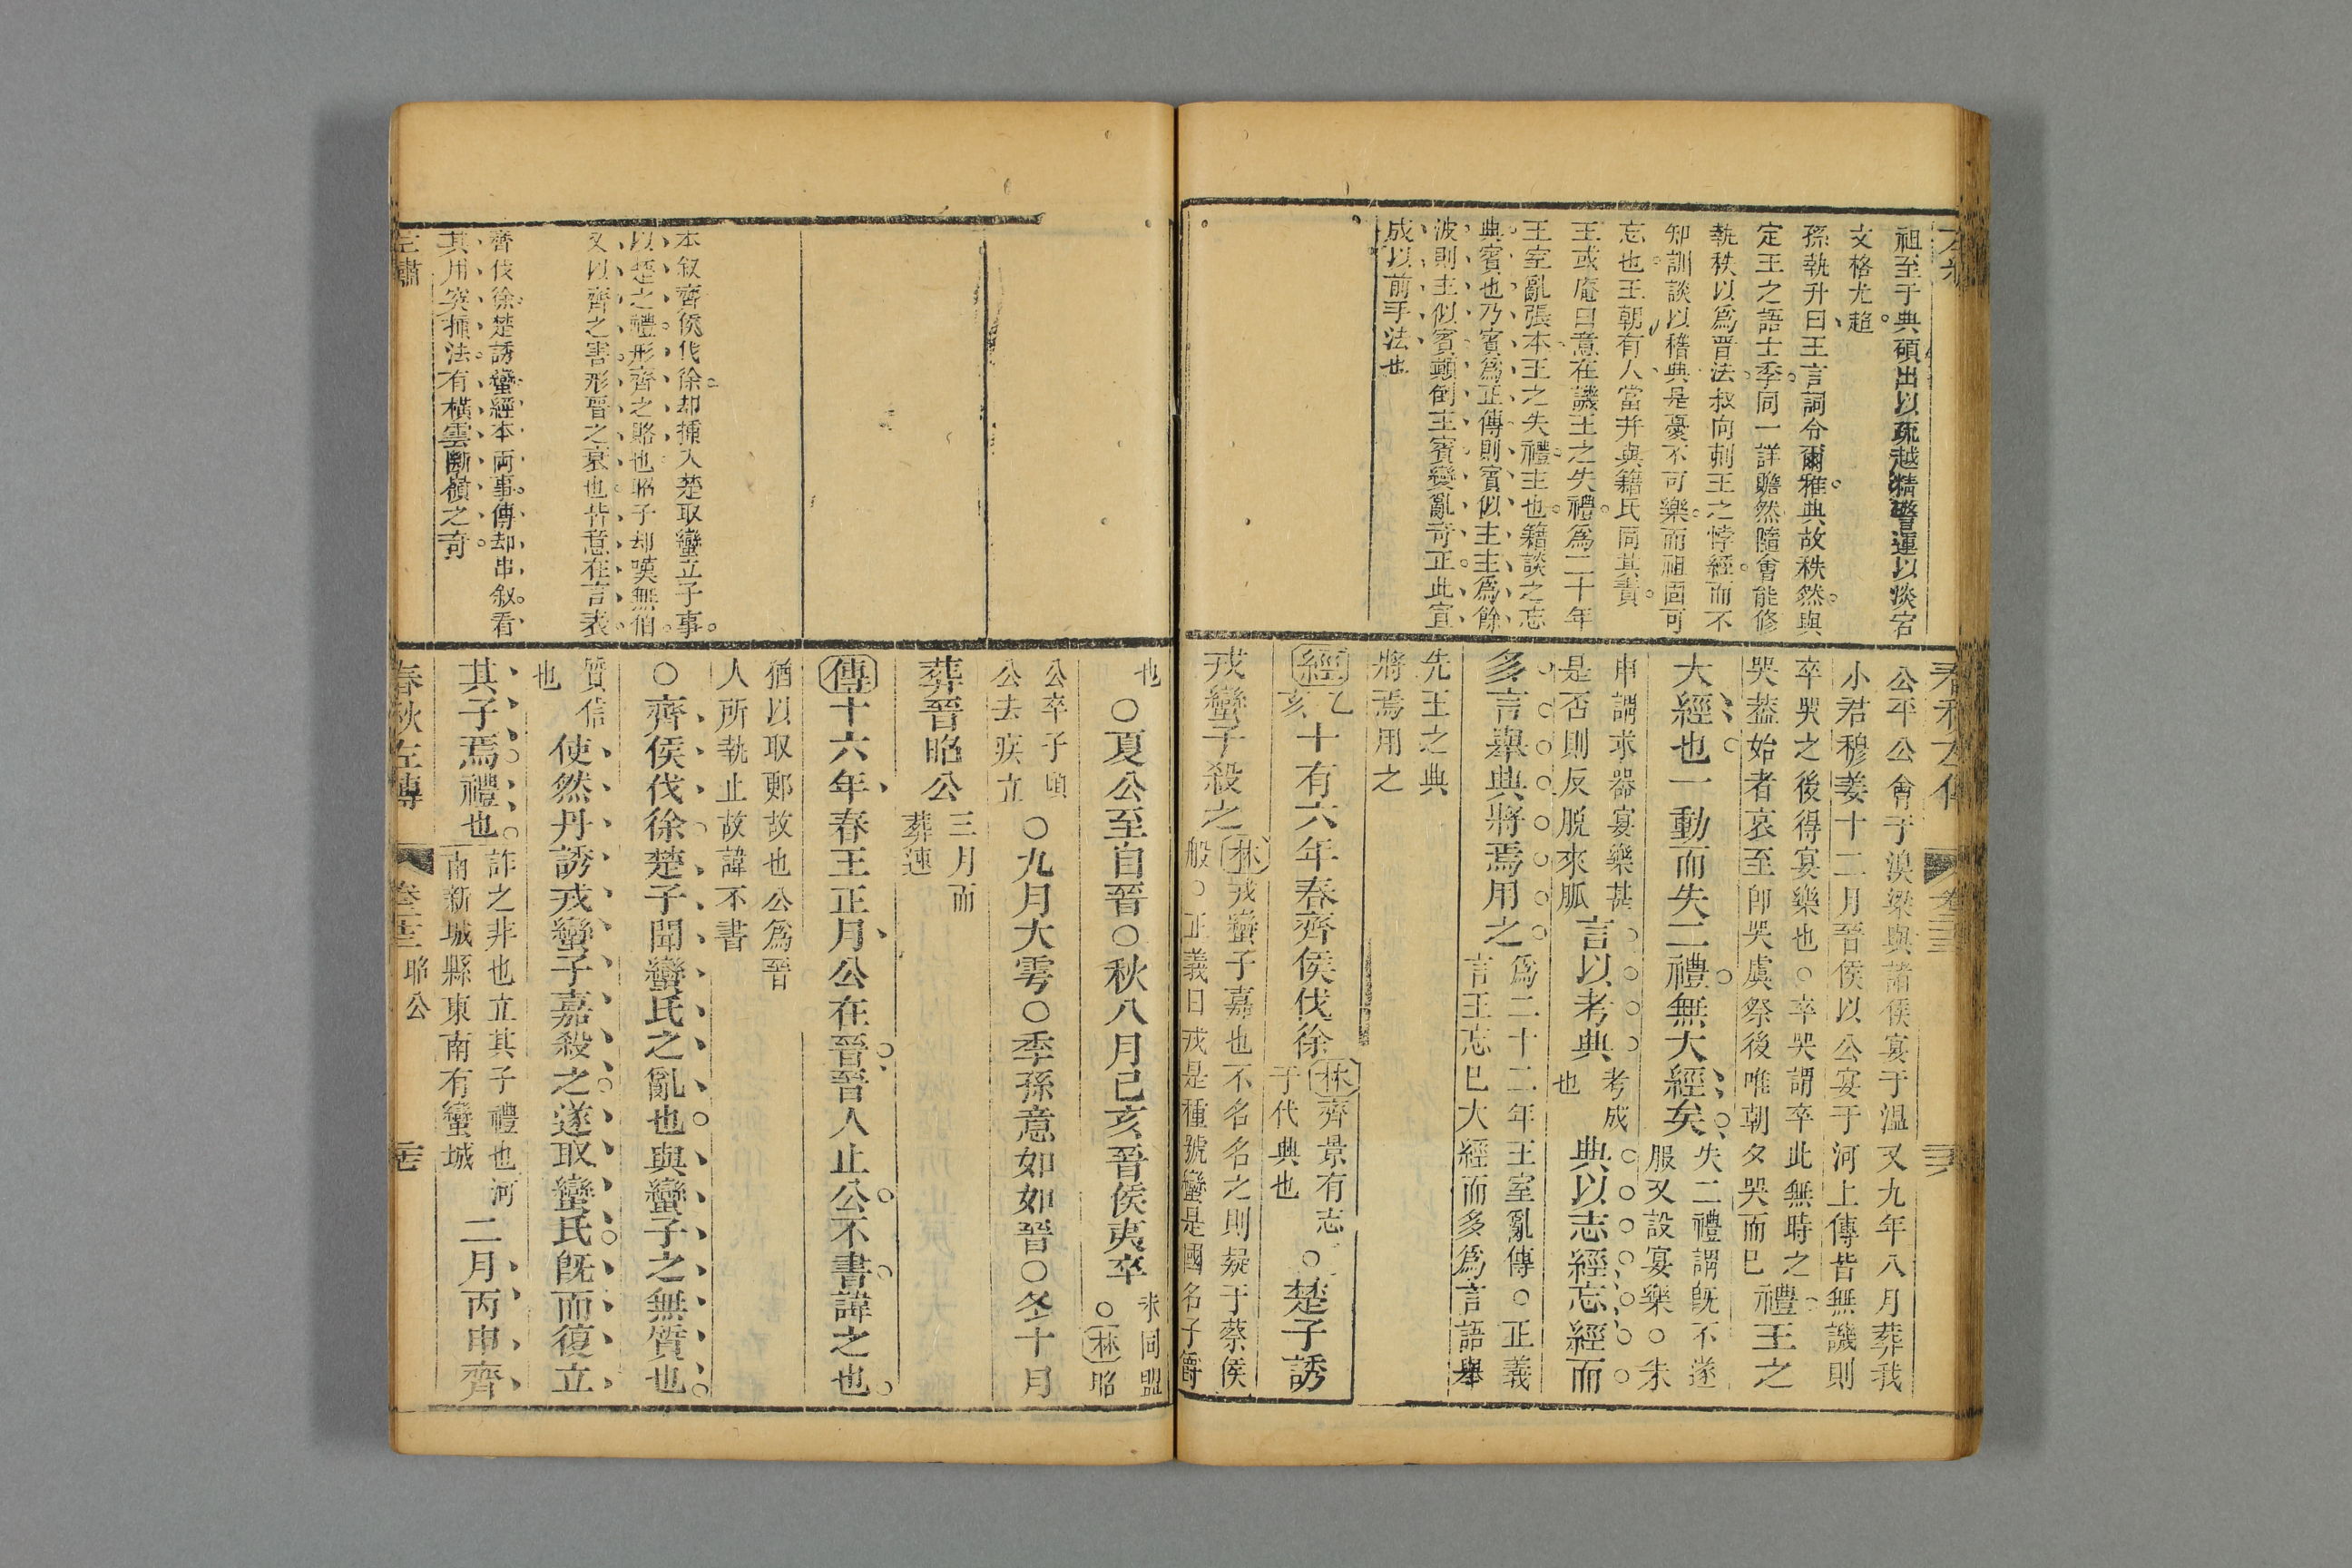 祖至于典碩出以疏越精警運以淡宕
文格尤超
孫執升曰王言詞令爾雅典故秩然與
定王之語士季同一詳贍然隨會能修
執秩以為晋法叔向刺王之悖經而不
知訓談以稽典是憂不可樂而祖固可
忘也王朝有人當并與籍氏同其責
王或庵曰意在譏王之失禮為二十年
王室亂張本王之失禮主也籍談之忘
典賓也乃賓為正傳則賓似主主為餘
波則主似賓顛倒主賓變亂奇正此宜
成以前手法也
公平公會于溴梁與諸侯宴于溫又九年八月葬我
小君穆姜十二月晉侯以公宴于河上傳皆無譏則
卒哭之後得宴樂也○卒哭謂卒此無時之
哭葢始者哀至卽哭虞祭後唯朝夕哭而巳
禮王之
大經也一動而失二禮無大經矣
失二禮謂旣不遂
服又設宴樂○朱
申謂求器宴樂甚
是否則反脫來胍
言以考典
考成
也
典以志經忘經而
多言舉典將焉用之
為二十二年王室亂傳○正義
言王忘巳大經而多為言語舉
先王之典
將焉用之
經
乙
亥
十有六年春齊侯伐徐
林齊景有志
于代興也
○楚子誘
戎蠻子殺之
林戎蠻子嘉也不名名之則疑于蔡侯
般○正義曰戎是種號蠻是國名子爵
也
○夏公至自晉○秋八月己亥晉侯夷卒
未同盟
○林昭
公卒子頃
公去疾立
○九月大雩○季孫意如如晉○冬十月
葬晉昭公
三月而
葬速
傳十六年春王正月公在晉晉人止公不書諱之也
猶以取鄆故也公為晉
人所執止故諱不書
○齊侯伐徐楚子聞蠻氏之亂也與蠻子之無質也
質信
也
使然丹誘戎蠻子嘉殺之遂取蠻氏旣而復立
其子焉禮也
詐之非也立其子禮也河
南新城縣東南有蠻城
二月丙申齊
本叙齊侯伐徐却揷入楚取蠻立子事
以楚之禮形齊之賂也昭子却嘆無伯
又以齊之害形晋之衰也皆意在言表
齊伐徐楚誘蠻經本兩事傳却串叙看
其用突揷法有橫雲斷嶺之奇
左繡
春秋左傳
昭公